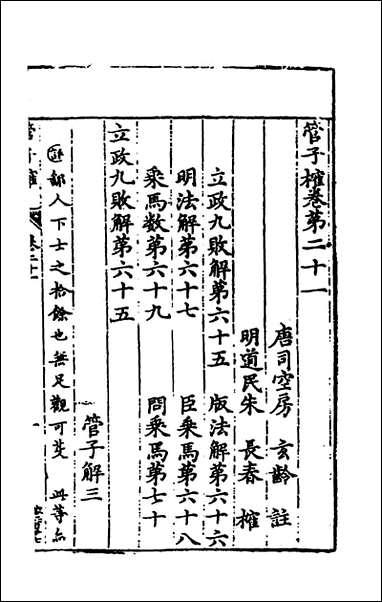 管子榷卷第二十一
唐司空房　玄齡　註
明道民朱　長春　榷
立政九敗解第六十五　版法解第六十六
明法解第六十七　臣乘馬第六十八
乘馬数第六十九　問乘馬第七十
管子解三
立政九敗解第六十五
部人下士之拾餘也無足觀可芟　此等
管子榷　卷二十一